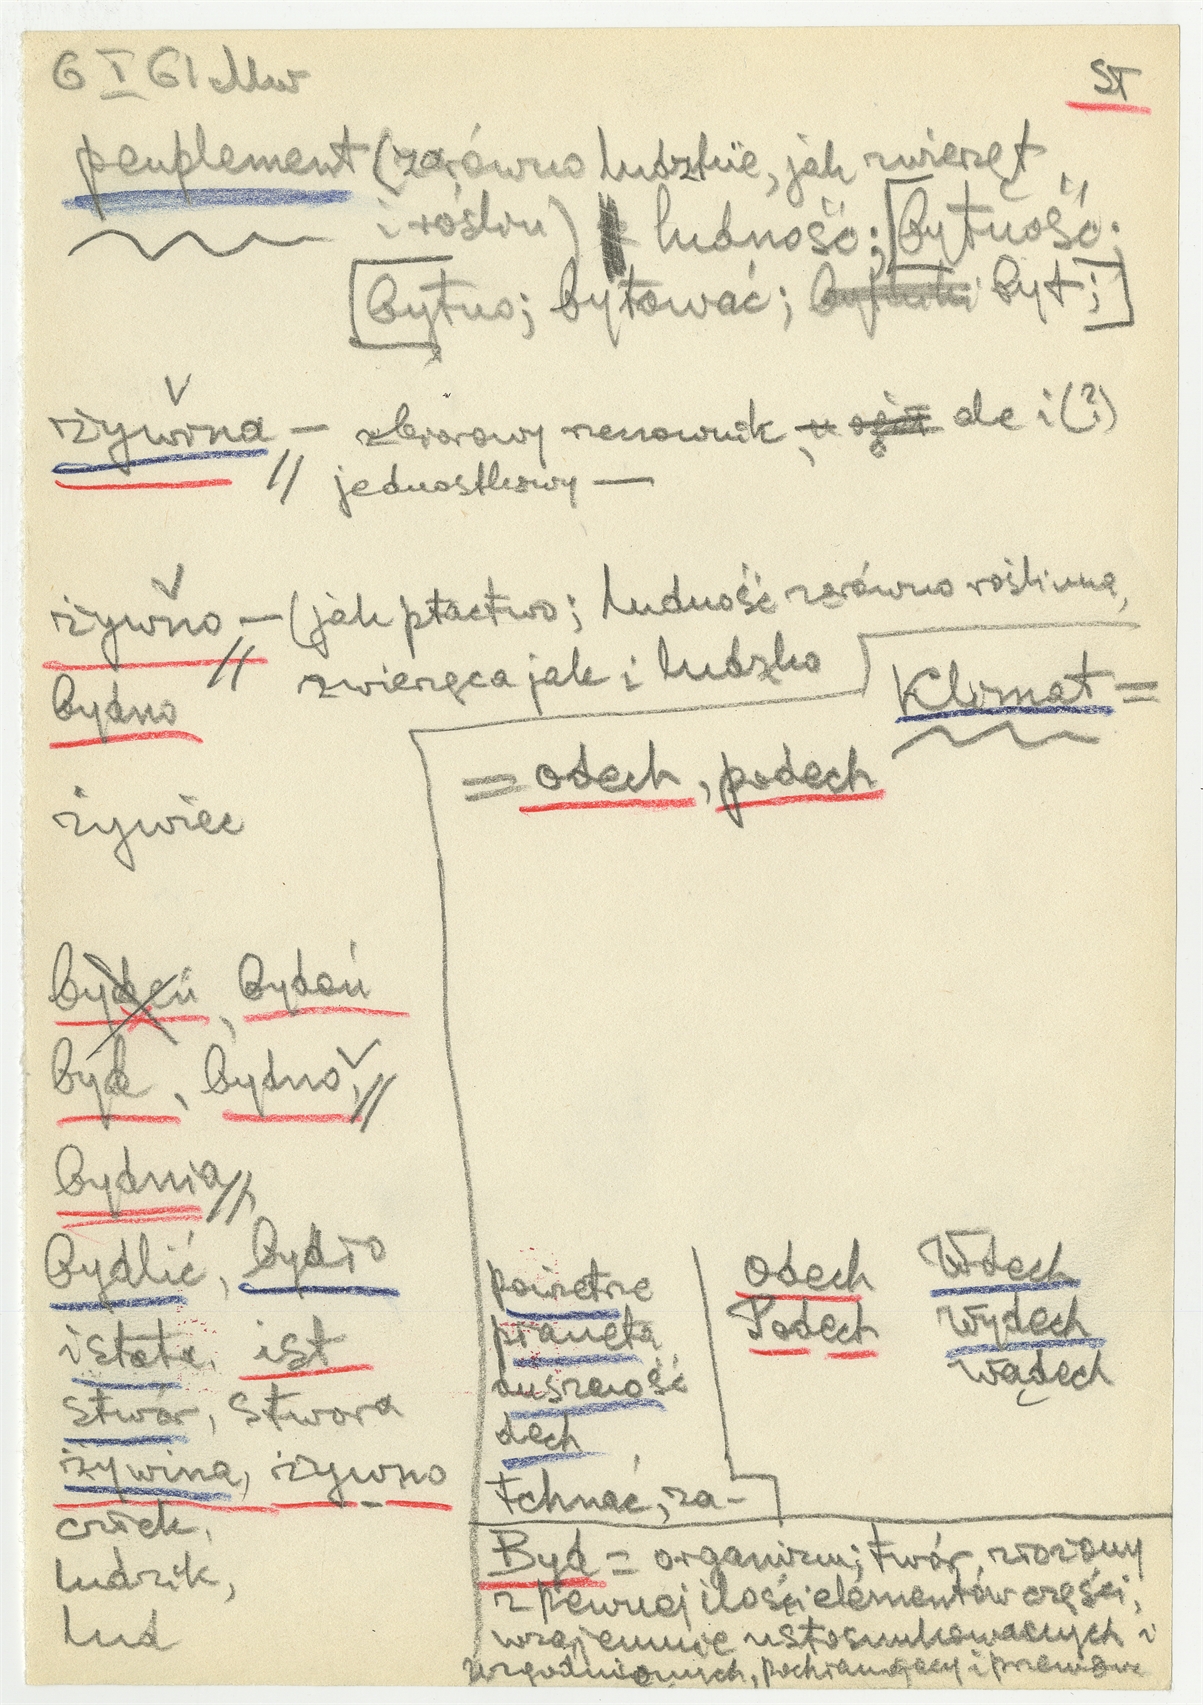 6 I 61 Mw
ST
peuplement (zarówno ludzkie, jak zwierzęt
i roślin) ludność; [bytność;
[bytno; bytować; byt;]
żywina — zbiorowy rzeczownik, ale i (?)
// jednostkowy —
żywno — (jak ptactwo; ludność zarówno roślinna,
// zwierzęca jak i ludzka
bydno
Klimat =
= odech, podech
żywiec
bydeń, bydoń
byd, bydno, //
bydnia //,
bydlić, bydło
istota, ist
stwór, stwora
żywina, żywno
człek,
ludzik,
lud
powietrze
planeta
duszność
dech
tchnąć, za-
Odech
Podech
Wdech
wydech
wądech
Byd = organizm; twór, złożony
z pewnej ilości elementów części,
wzajemnie ustosunkowanych i